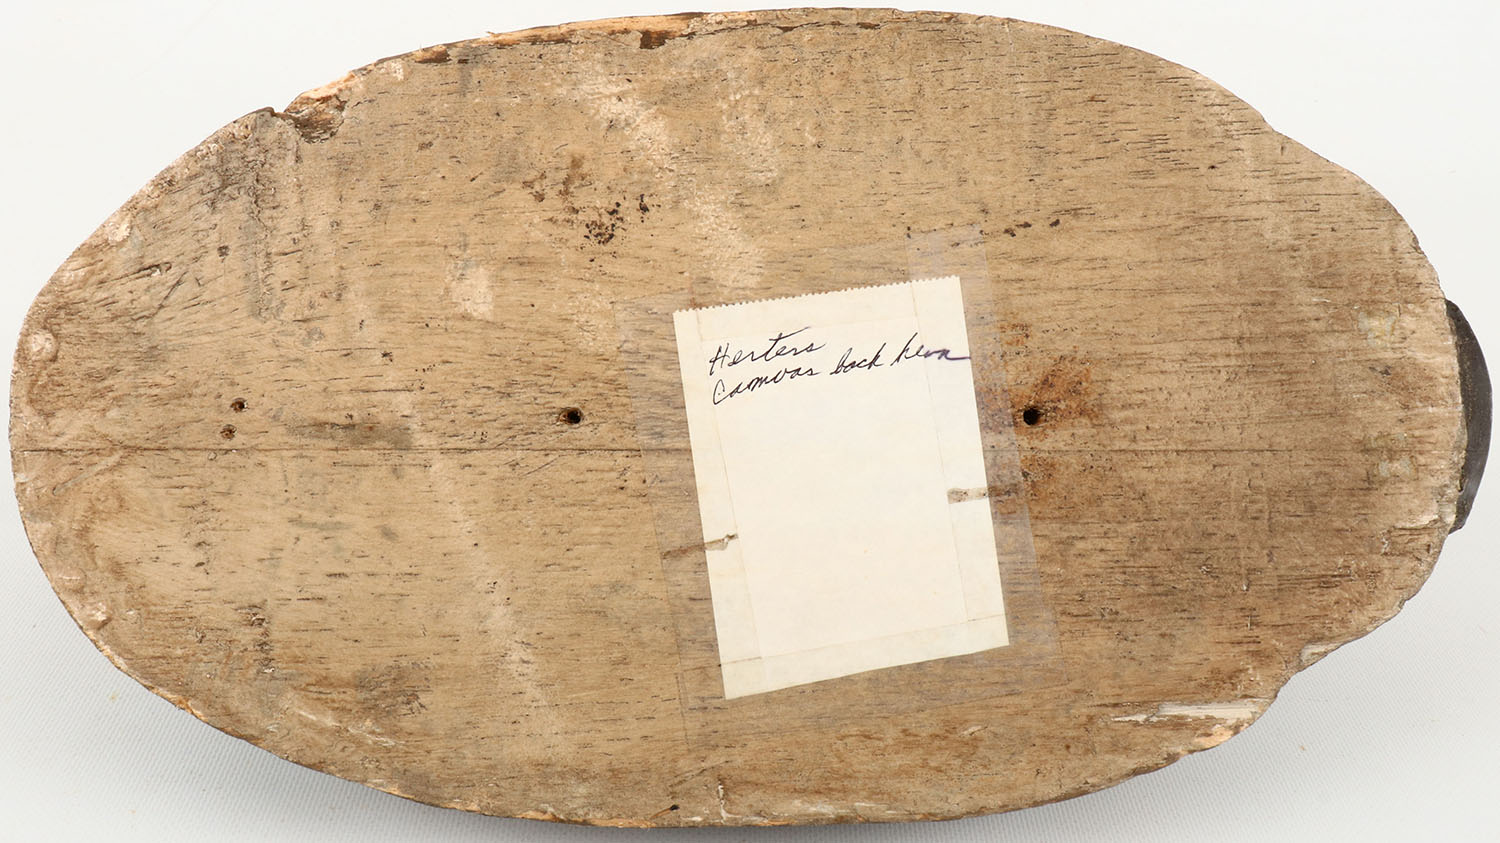 Herters
Canvas back hen